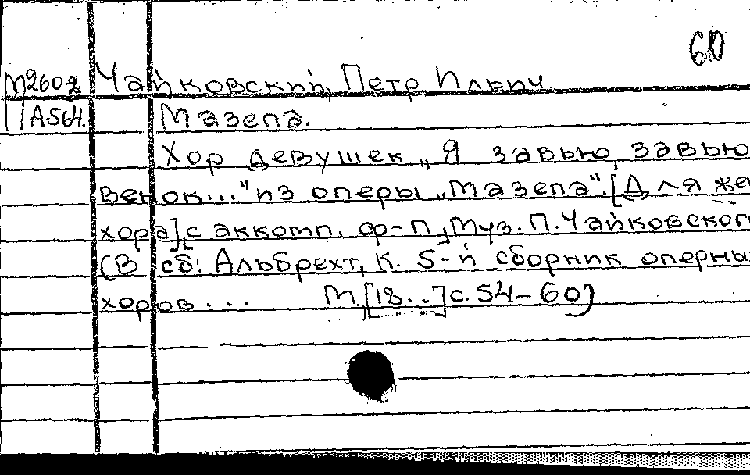 60
М260г Чайковский, Петр Ильич
А564. Мазепа.
Хор девушек „Я завью, завью
венок..." из оперы „Мазепа". [Для же
хора] с аккомп. ф-п, Муз. П. Чайковског
(В сб: Альбрехт, К. 5-й сборник оперны
хоров... М, [18..] с. 54-60)